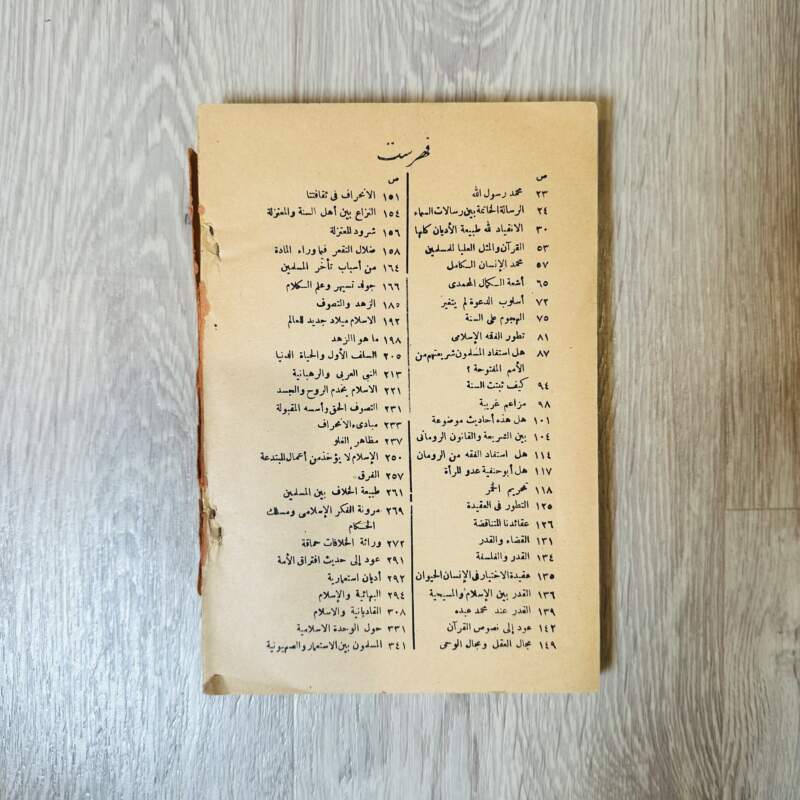 فهرست
ص
٢٣ محمد رسول الله
٢٤ الرسالة الخاتمة بين رسالات السماء
٣٠ الانقياد لله طبيعة الأديان كلها
٥٣ القرآن والمثل العليا للمسلمين
٥٧ محمد الإنسان الكامل
٦٥ أشعة الكمال المحمدى
٧٢ أسلوب الدعوة لم يتغير
٧٥ الهجوم على السنة
٨١ تطور الفقه الإسلامى
٨٧ هل استفاد المسلمون شريعتهم من
الأمم المفتوحة ؟
٩٤ كيف ثبتت السنة
٩٨ مزاعم غريبة
١٠١ هل هذه أحاديث موضوعة
١٠٤ بين الشريعة والقانون الرومانى
١١٤ هل استفاد الفقه من الرومان
١١٧ هل أبو حنفية عدو للمرأة
١١٨ تحريم الخمر
١٢٥ التطور فى العقيدة
١٢٦ عقائدنا المتناقضة
١٣١ القضاء والقدر
١٣٤ القدر والفلسفة
١٣٥ عقيدة الاختيار فى الإنسان الحيوان
١٣٦ القدر بين الإسلام والمسيحية
١٣٩ القدر عند محمد عبده
١٤٢ عود إلى نصوص القرآن
١٤٩ مجال العقل ومجال الوحى
ص
١٥١ الانحراف فى ثقافتنا
١٥٤ النزاع بين أهل السنة والمعتزلة
١٥٦ شرود المعتزلة
١٥٨ ضلال التقعر فيما وراء المادة
١٦٤ من أسباب تأخر المسلمين
١٦٦ جولد تسيهر وعلم الكلام
١٨٥ الزهد والتصوف
١٩٢ الاسلام ميلاد جديد للعالم
١٩٨ ما هو الزهد
٢٠٥ السلف الأول والحياة الدنيا
٢١٣ النبى العربى والرهبانية
٢٢١ الاسلام يخدم الروح والجسد
٢٣١ التصوف الحق وأسسه المقبولة
٢٣٣ مبادىء الانحراف
٢٣٧ مظاهر الغلو
٢٥٠ الإسلام لا يؤخذ من أعمال المبتدعة
٢٥٧ الفرق
٢٦١ طبيعة الخلاف بين المسلمين
٢٦٩ مرونة الفكر الإسلامى ومسلك
الحكام
٢٧٢ وراثة الخلافات حماقة
٢٩١ عود إلى حديث افتراق الأمة
٢٩٢ أديان استعمارية
٢٩٤ البهائية والإسلام
٣٠٨ القاديانية والاسلام
٣٣١ حول الوحدة الاسلامية
٣٤١ المسلمون بين الاستعمار والصهيونية